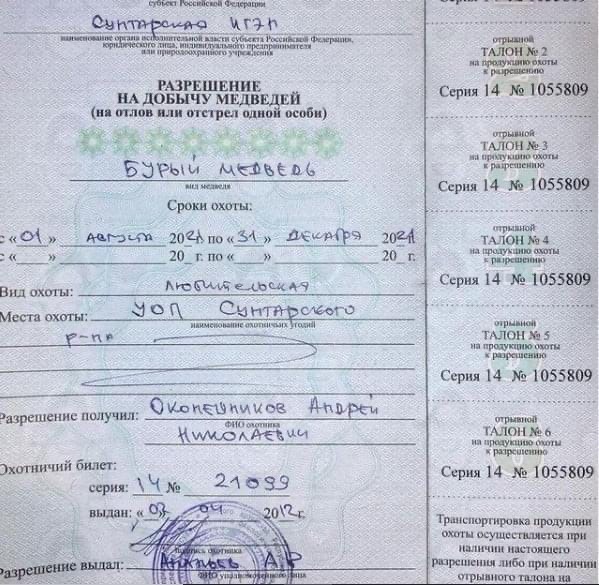 субъект Российской Федерации
Сунтарская ИГЭП
наименование органа исполнительной власти субъекта Российской Федерации,
юридического лица, индивидуального предпринимателя
или природоохранного учреждения
РАЗРЕШЕНИЕ
НА ДОБЫЧУ МЕДВЕДЕЙ
(на отлов или отстрел одной особи)
БУРЫЙ МЕДВЕДЬ
вид медведя
Сроки охоты:
с «01» АВГУСТА 2021 по «31» ДЕКАБРЯ 2021 г.
с «__» 20_ г. по «__» 20_ г.
Вид охоты: Любительская
Места охоты: УОП Сунтарского
наименование охотничьих угодий
р-на
Разрешение получил: Окопешников Андрей
ФИО охотника
Николаевич
Охотничий билет:
серия: 14 № 21099
выдан: «03» 04 2012г.
подпись охотника
Разрешение выдал: А. В
ФИО уполномоченного лица
Серия 14 № 1055809
отрывной
ТАЛОН № 2
на продукцию охоты
к разрешению
Серия 14 № 1055809
отрывной
ТАЛОН № 3
на продукцию охоты
к разрешению
Серия 14 № 1055809
отрывной
ТАЛОН № 4
на продукцию охоты
к разрешению
Серия 14 № 1055809
отрывной
ТАЛОН № 5
на продукцию охоты
к разрешению
Серия 14 № 1055809
отрывной
ТАЛОН № 6
на продукцию охоты
к разрешению
Серия 14 № 1055809
Транспортировка продукции
охоты осуществляется при
наличии настоящего
разрешения либо при наличии
отрывного талона на